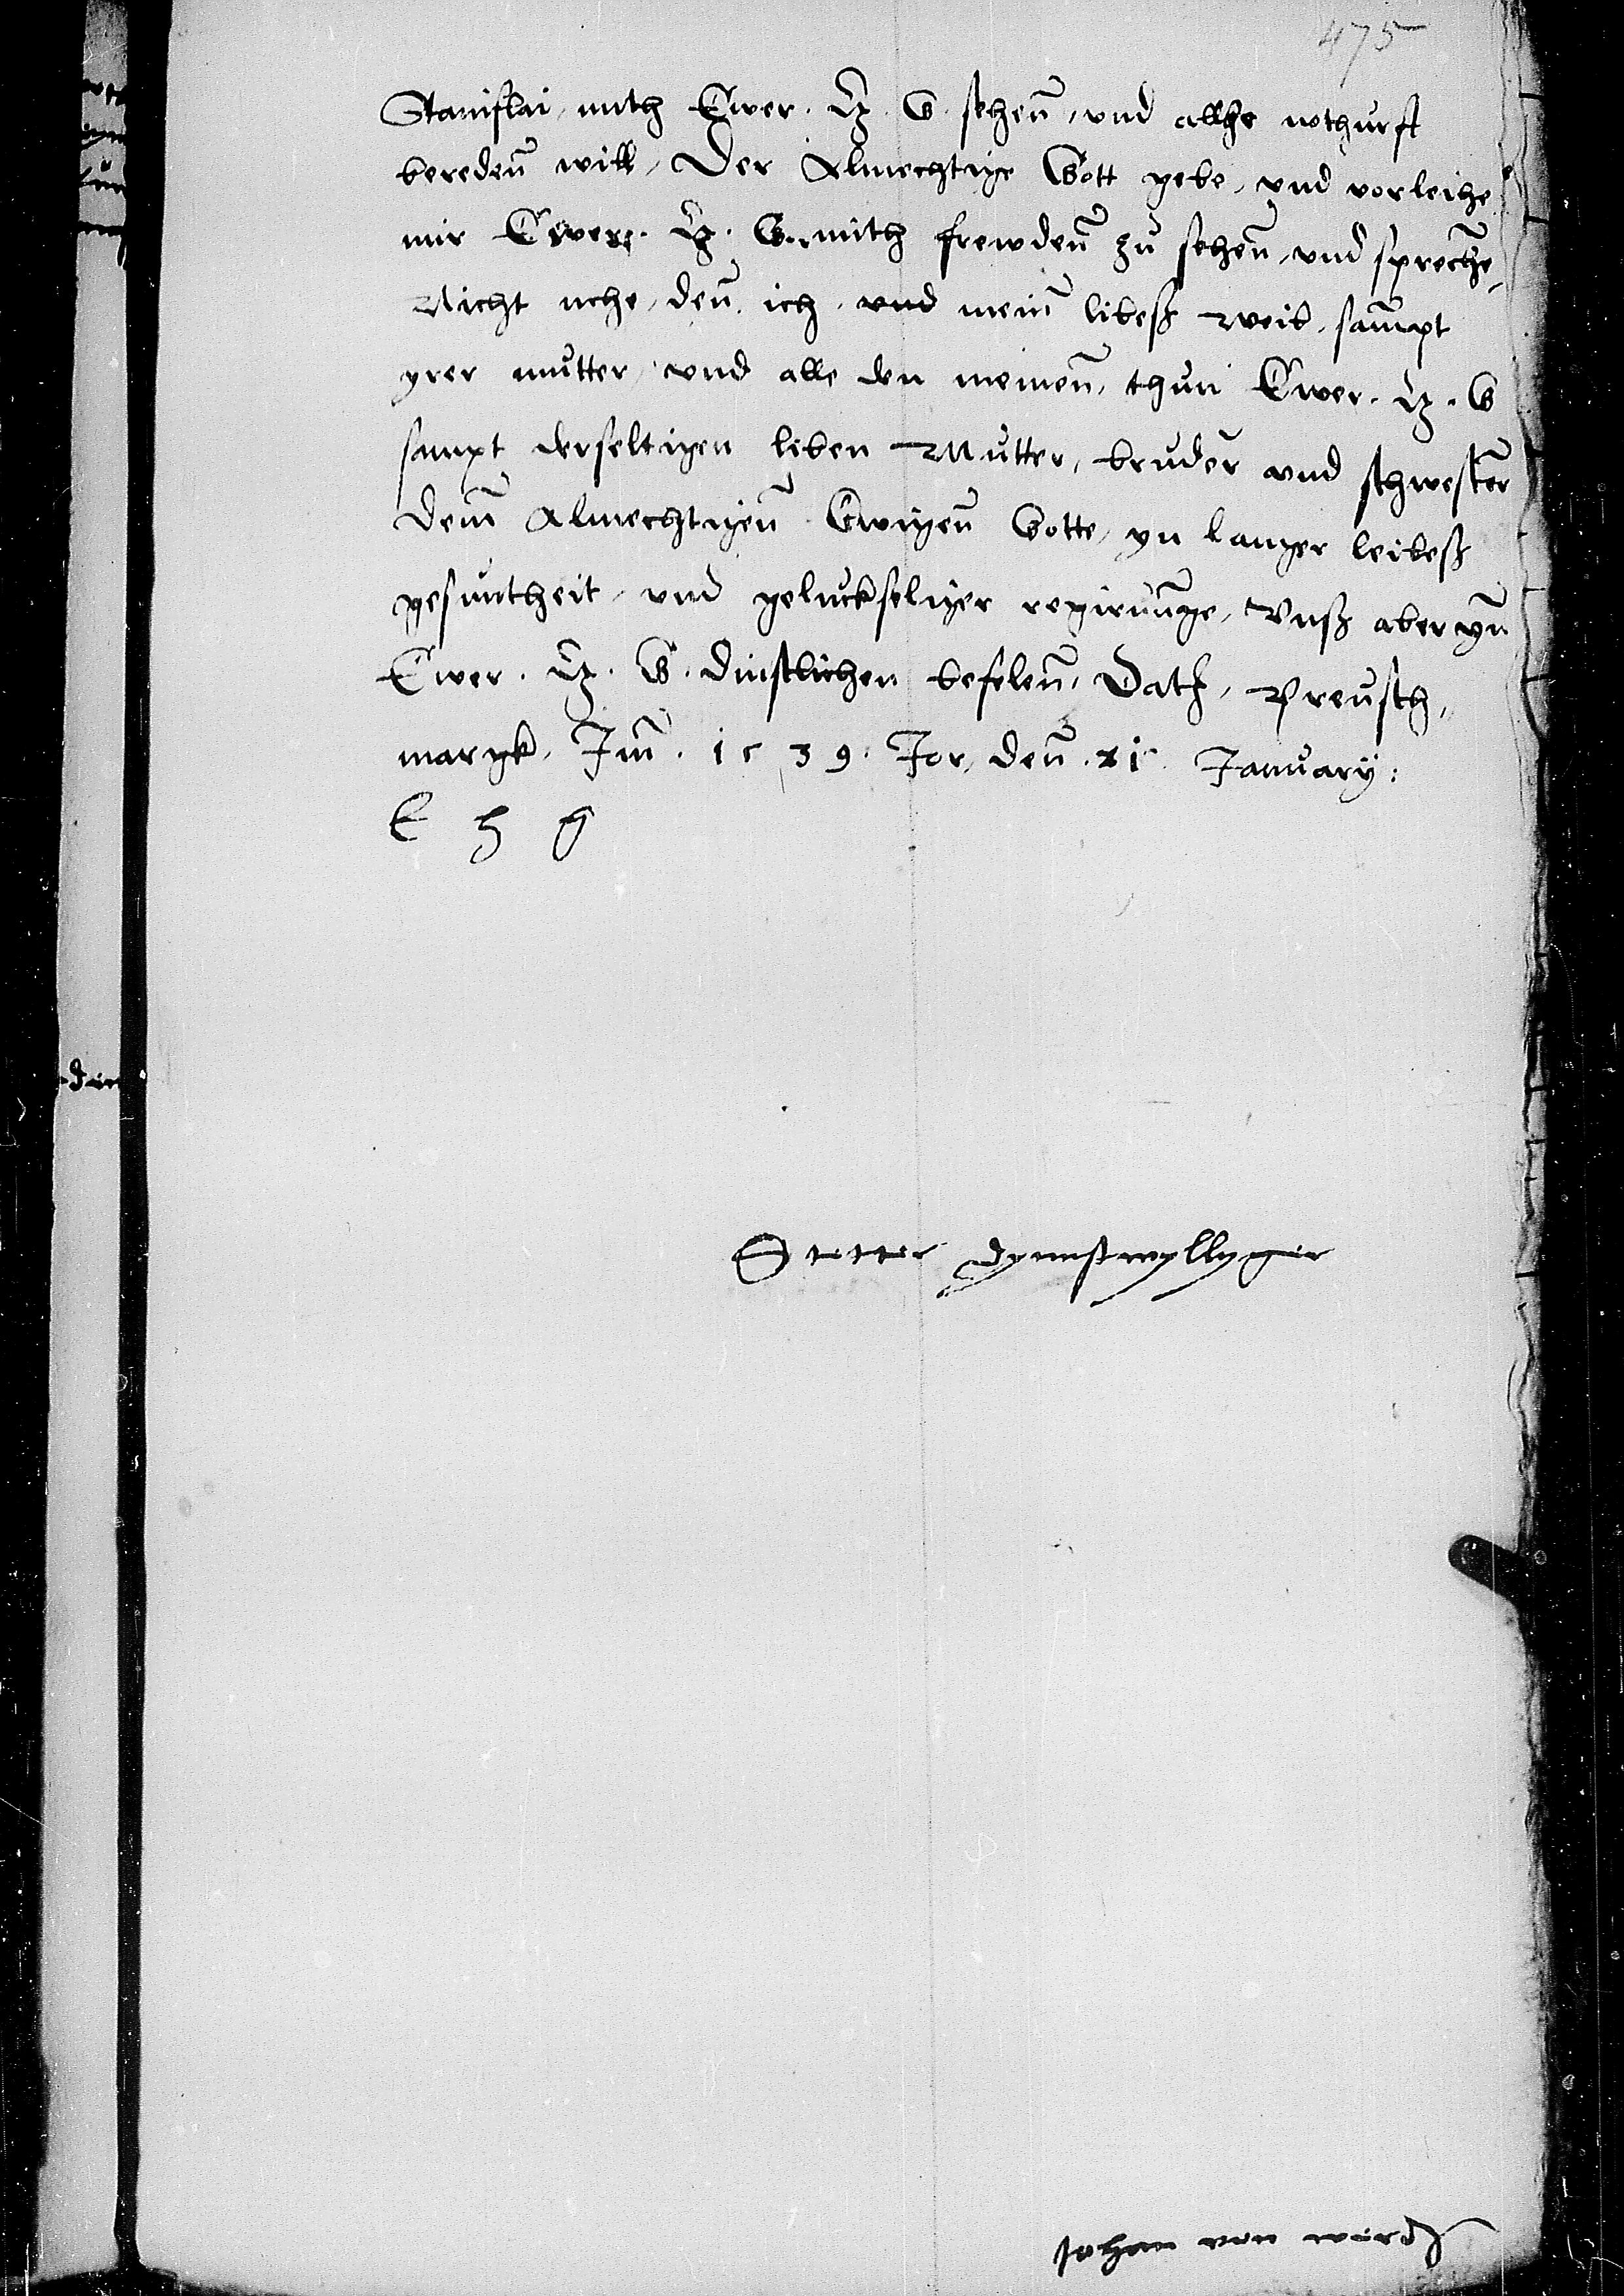 475
Stanislai, mith Ewer. H. G. sehenn, und allhe nothurft
beredenn will, Der Almechtige Gott gebe, und vorleihe
mir Ewer. H. G. mith frewdenn zu sehenn, und sprechē,
Nicht mehe, den ich, und mein libeß weib, sampt
yrer mutter, und alle den meinenn, thun Ewer. H. G
sampt derselbigen liben Mutter, bruder und schwester
dem Almechtigenn Ewigenn Gotte, yn langer leibeß
gesuntheit, und geluckseliger regirunge, Unß aber yn
Ewer. H. G. dinstlichen befelenn, Dat, Preusch,
margk, Im. 1539. Jor, den. Januarij:
E h g
Stetter dynnstwyllyger
Johan von werd